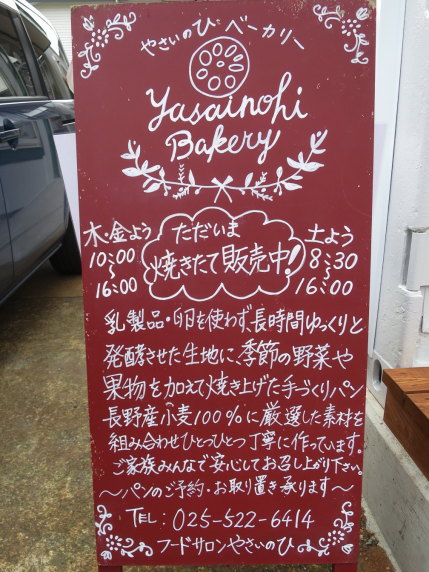 やさいのひベーカリー
Yasainohi
Bakery
木・金よう
10:00
〜
16:00
ただいま
焼きたて販売中!
土よう
8:30
〜
16:00
乳製品・卵を使わず長時間ゆっくりと
発酵させた生地に、季節の野菜や
果物を加えて焼き上げた手づくりパン
長野産小麦100%に厳選した素材を
組み合わせひとつひとつ丁寧に作っています。
ご家族みんなで安心してお召し上がり下さい。
〜パンのご予約・お取り置き承ります〜
TEL:025-522-6414
フードサロンやさいのひ